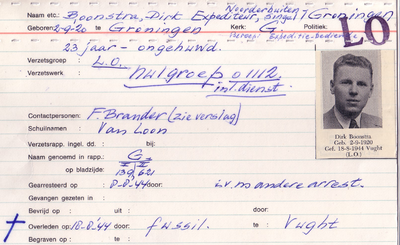 Noorderbuiten
Naam etc: Boonstra, Dirk Expediteur, Singel 7 Groningen
Geboren: 2-9-20 te Groningen Kerk: G. Politiek:
23 jaar - ongehuwd. Beroep: Expeditie-bediende
LO
Verzetsgroep : L.O.
Verzetswerk : hulgroep o 1112
int. dienst.
Contactpersonen: F. Brander (zie verslag)
Schuilnamen : Van Loon
Verzetsrapp. ingel. dd. : bij:
Naam genoemd in rapp.: G
op bladzijde: 139, 621
Gearresteerd op : 8-8-'44 door: i.v.m andere arrest.
Gevangen gezeten in :
Bevrijd op : uit : door:
Overleden op: 18-8-'44 door: fussil. te: Vught
Begraven op : te :
Dirk Boonstra
Geb. 2-9-1920
Gef. 18-8-1944 Vught
(L.O.)